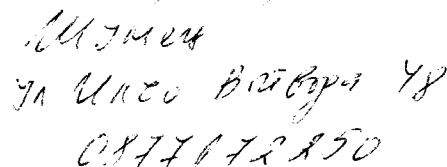 Шумен
ул Илчо Войвода 48
0877672250